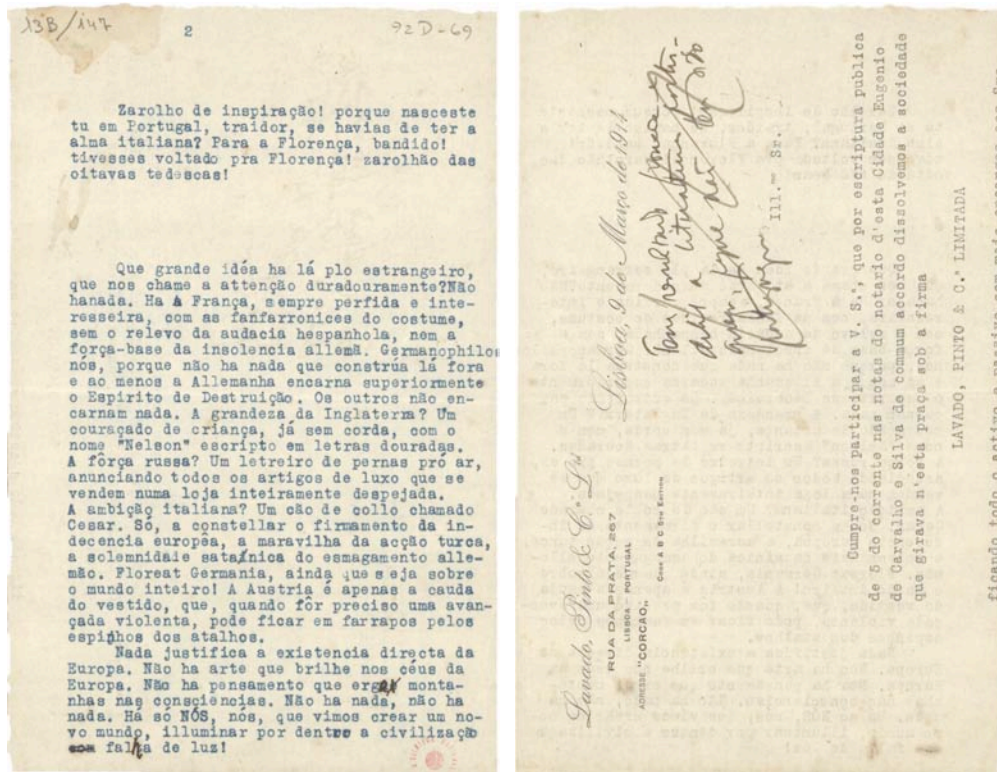 13B/147
2
92D-69
Zarolho de inspiração! porque nasceste
tu em Portugal, traidor, se havias de ter a
alma italiana? Para a Florença, bandido!
tivesses voltado pra Florença! zarolhão das
oitavas tedescas!
Que grande idéa ha lá plo estrangeiro,
que nos chame a attenção duradouramente?Não
hanada. Ha A França, sempre perfida e inte-
resseira, com as fanfarronices do costume,
sem o relevo da audacia hespanhola, nem a
força-base da insolencia allemã. Germanophilos
nós, porque não ha nada que construa lá fora
e ao menos a Allemanha encarna superiormente
o Espirito de Destruição. Os outros não en-
carnam nada. A grandeza de Inglaterra? Um
couraçado de criança, já sem corda, com o
nome "Nelson" escripto em letras douradas.
A fôrça russa? Um letreiro de pernas pró ar,
anunciando todos os artigos de luxo que se
vendem numa loja inteiramente despejada.
A ambição italiana? Um cão de collo chamado
Cesar. Só, a constellar o firmamento da in-
decencia européa, a maravilha da acção turca,
a solemnidaie satanica do esmagamento alle-
mão. Floreat Germania, ainda que seja sobre
o mundo inteiro! A Austria é apenas a cauda
do vestido, que, quando fôr preciso uma avan-
çada violenta, pode ficar em farrapos pelos
espinhos dos atalhos.
Nada justifica a existencia directa da
Europa. Não ha arte que brilhe nos céus da
Europa. Não ha pensamento que erga monta-
nhas nas consciencias. Não ha nada, não ha
nada. Ha so NÓS, nós, que vimos crear um no-
vo mundo, illuminar por dentro a civilização
com falha de luz!
Lavado, Pinto & C.ª L.da
RUA DA PRATA, 267
LISBOA - PORTUGAL
ADRESSE "CORCAO,"
Code A B C 5th Edition
Lisboa, 9 de Março de 1914
Ill.- Sr.
Cumpre-nos participar a V. S.ª, que por escriptura publica
de 5 do corrente nas notas do notario d'esta Cidade Eugenio
de Carvalho e Silva de commum accordo dissolvemos a sociedade
que girava n'esta praça sob a firma
LAVADO, PINTO & C.ª LIMITADA
ficando todo o activo e